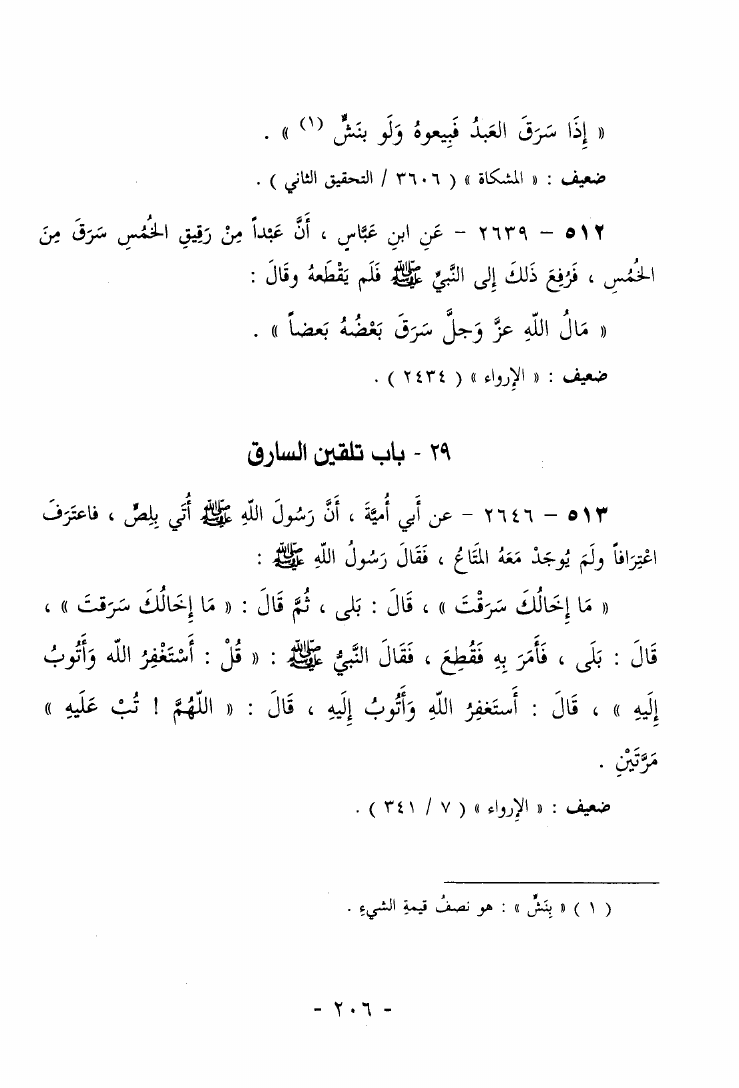 « إِذَا سَرَقَ العَبدُ فَبِيعوهُ وَلَو بنَشٍّ (١) » .
ضعيف : « المشكاة » ( ٣٦٠٦ / التحقيق الثاني ) .
٥١٢ – ٢٦٣٩ – عَنِ ابنِ عَبَّاسٍ ، أَنَّ عَبْداً مِنْ رَقِيقِ الخُمُسِ سَرَقَ مِنَ
الخُمُسِ ، فَرُفِعَ ذَلكَ إِلى النَّبيِّ ﷺ فَلَم يَقْطَعهُ وقَالَ :
« مَالُ اللّهِ عزَّ وَجلَّ سَرَقَ بَعْضُهُ بَعضاً » .
ضعيف : « الإرواء » ( ٢٤٣٤ ) .
٢٩ - باب تلقين السارق
٥١٣ – ٢٦٤٦ – عن أَبي أُميَّةَ ، أَنَّ رَسُولَ اللّهِ ﷺ أُتَي بِلِصٍّ ، فاعتَرَفَ
اعْتِرَافاً ولَم يُوجَدْ مَعَهُ المَتَاعُ ، فَقَالَ رَسُولُ اللّهِ ﷺ :
« مَا إِخَالُكَ سَرَقْتَ » ، قَالَ : بَلى ، ثُمَّ قَالَ : « مَا إِخَالُكَ سَرَقتَ » ،
قَالَ : بَلَى ، فَأَمَرَ بِهِ فَقُطِعَ ، فَقَالَ النَّبيُّ ﷺ : « قُلْ : أَسْتَغْفِرُ اللّه وَأَتُوبُ
إِلَيهِ » ، قَالَ : أَستَغفِرُ اللّهِ وَأَتُوبُ إِلَيهِ ، قَالَ : « اللّهُمَّ ! تُبْ عَلَيهِ »
مَرَّتَيْنِ .
ضعيف : « الإرواء » ( ٧ / ٣٤١ ) .
( ١ ) « بِنَشٍّ » : هو نصفُ قيمةِ الشيءِ .
- ٢٠٦ -